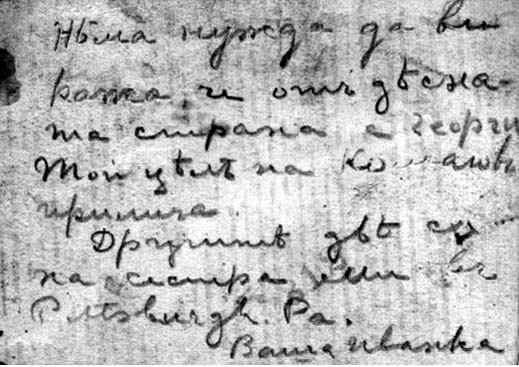 Нѣма нужда да ви
кажа, че отъ дѣсна-
та страна е Георги
Той цѣлъ на
прилича.
Другитѣ двѣ са
на сестра ми въ
Pittsburgh. Pa.
Ваша Иванка